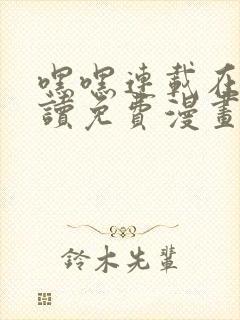 嘿嘿連載在
讀免費漫畫
鈴木先輩